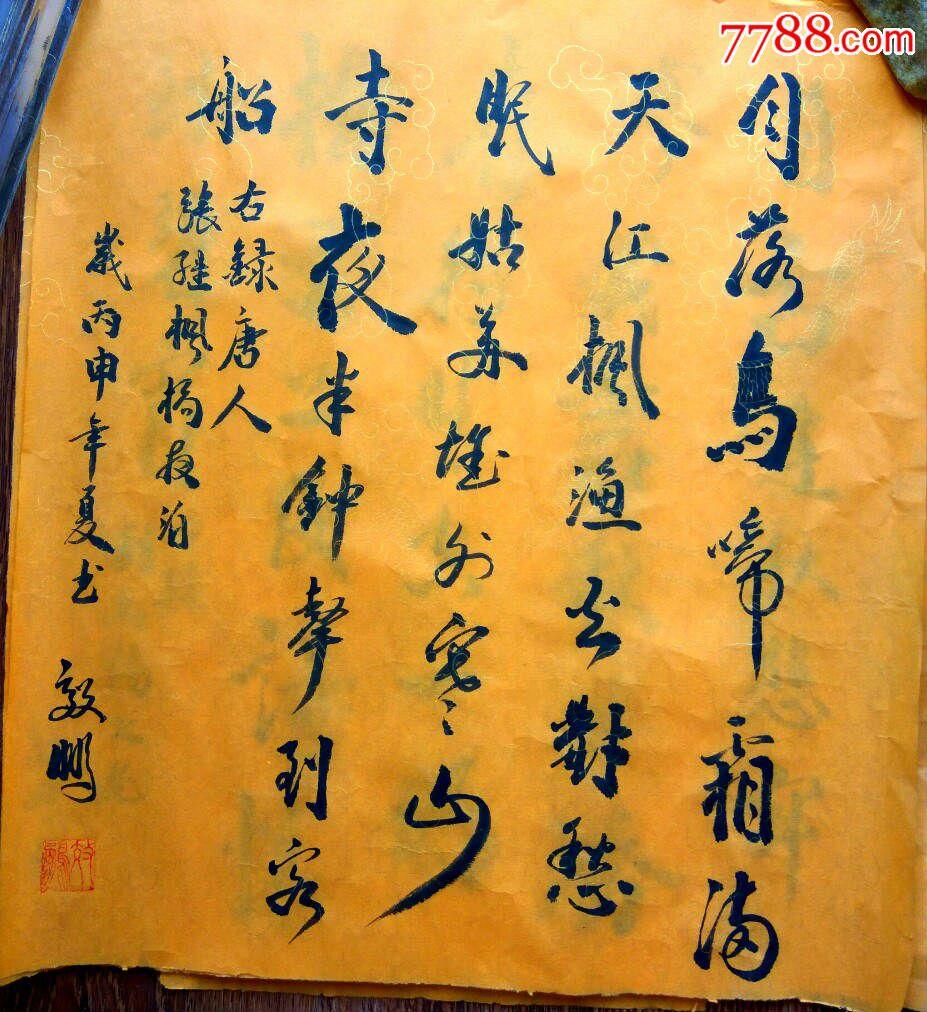 7788.com
月落烏啼霜滿
天江楓漁火對愁
眠姑苏城外寒山
寺夜半鈡聲到客
船
右録唐人
張继楓橋夜泊
歲丙申年夏书